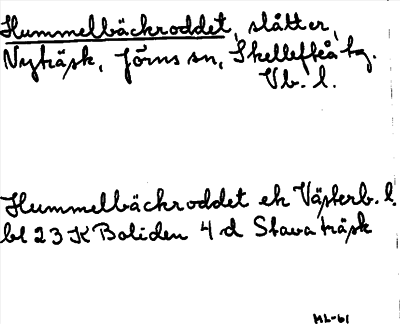 Hummelbäckroddet, slåtter,
Nyträsk, Jörns sn, Skellefteå tg.
Vb. l.
Hummelbäckroddet ek Västerb. l.
bl 23 K Boliden 4 d Stavaträsk
HL-61